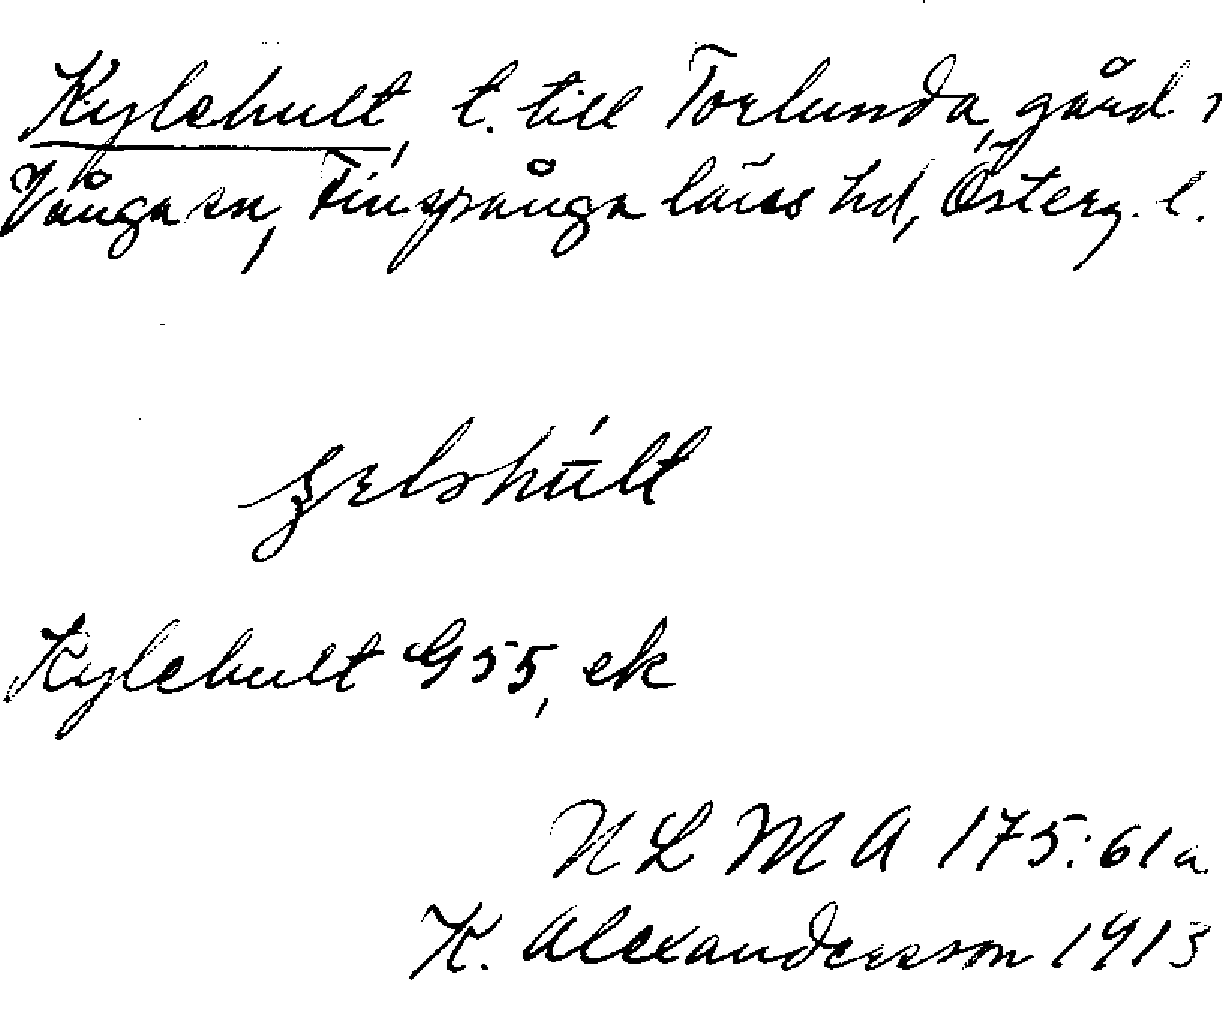 Kylehult, t. till Torlunda, gård i
Vånga sn, Finspånga läns hd, Österg. l.
Kylehult G 55, ek
NLMA 175:61a
K. Alexandersson 1913